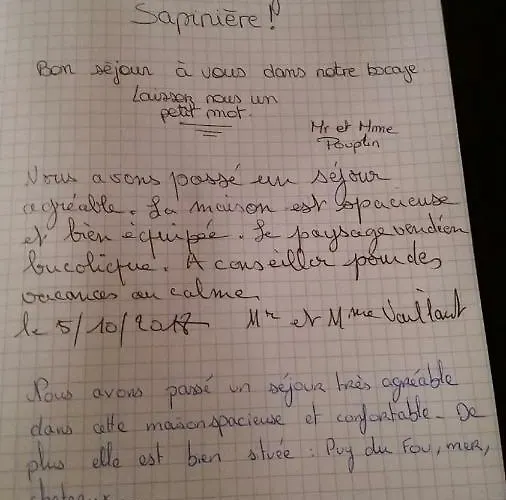 Sapinière !
Bon séjour à vous dans notre bocage.
Laissez nous un
petit mot.
Mr et Mme
Pouplin
Nous avons passé un séjour
agréable. La maison est spacieuse
et bien équipée. Le paysage vendéen
bucolique. A conseiller pour des
vacances au calme.
le 5/10/2017 Mr et Mme Vaillant
Nous avons passé un séjour très agréable
dans cette maison spacieuse et confortable. De
plus elle est bien située : Puy du Fou, mer,